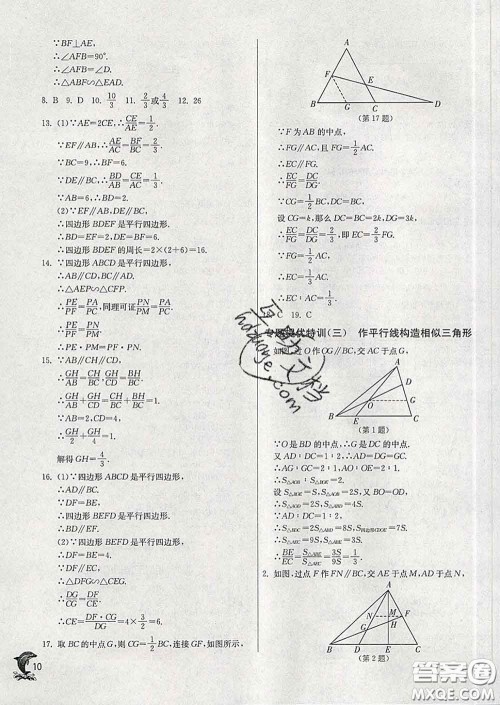 ∵BF⊥AE,
∴∠AFB=90°.
∴∠AFB=∠D.
∴△ABF∽△EAD.
8. B 9. D 10. 10/3 11. 2/3或4/3 12. 26
13. (1)∵AE=2CE,∴CE/AE=1/2.
∵EF∥AB,∴BF/BC=AE/AC=2/3.
∵BC=9,∴BF=6.
∵DE∥BC,∴BD/AB=CE/AC=1/3.
∵AB=6,∴BD=2.
(2)∵EF∥AB,DE∥BC,
∴四边形BDEF是平行四边形.
∴BD=EF=2,DE=BF=6.
∴四边形BDEF的周长=2×(2+6)=16.
14. ∵四边形ABCD是平行四边形,
∴AB∥CD,BC∥AD.
∴△AEP∽△CFP.
∴PE/PF=PA/PC,同理可证PN/PM=PA/PC.
∴PE/PF=PN/PM.
∴PE·PM=PF·PN.
15. ∵AB∥GH∥CD,
∴GH/AB=CH/BC,GH/CD=BH/BC.
∴GH/AB+GH/CD=CH/BC+BH/BC=1.
∴GH/2+GH/4=1.
解得GH=4/3.
16. (1)∵四边形ABCD是平行四边形,
∴AD∥BC.
∵DF=BE,
∴四边形BEFD是平行四边形.
(2)∵四边形BEFD是平行四边形,
∴DF=BE=4.
∵DF∥EC,
∴△DFG∽△CEG.
∴DG/CG=DF/CE.
∴CE=DF·CG/DG=4×3/2=6.
17. 取BC的中点G,则CG=1/2BC,连接GF,如图所示,
10
A
F
E
B G C D
(第17题)
∵F为AB的中点,
∴FG∥AC,且FG=1/2AC.
即EC∥FG.
∴EC/FG=DC/DG.
∵CG=1/2BC,DC=BC,
设CG=k,那么DC=BC=2k,DG=3k.
∴EC/FG=DC/DG=2/3,即EC=2/3FG.
∵FG=1/2AC,
∴EC=1/3AC.
∴EC/AC=1/3.
C 19. C
(三) 作平行线构造相似三角形
如图,过O作OG∥BC,交AC于点G,
A
D
O G
B E C
(第1题)
∵O是BD的中点,∴G是DC的中点.
又AD∶DC=1∶2,∴AD=DG=GC.
∴AG∶GC=2∶1,AO∶OE=2∶1.
∴S△AOB∶S△BOE=2.
设S△BOE=S,S△AOB=2S,又BO=OD,
∴S△AOD=2S,S△ABD=4S.
∵AD∶DC=1∶2,
∴S△BDC=2S△ABD=8S,S四边形CDOE=7S.
∴S△AEC=9S,S△ABE=3S.
∴BE/EC=S△ABE/S△AEC=3S/9S=1/3.
2. 如图,过点F作FN∥BC,交AE于点M,交AD于点N,
A
N M F
H
B D E C
(第2题)
hdzuoye.com
答案圈
MXQE.COM